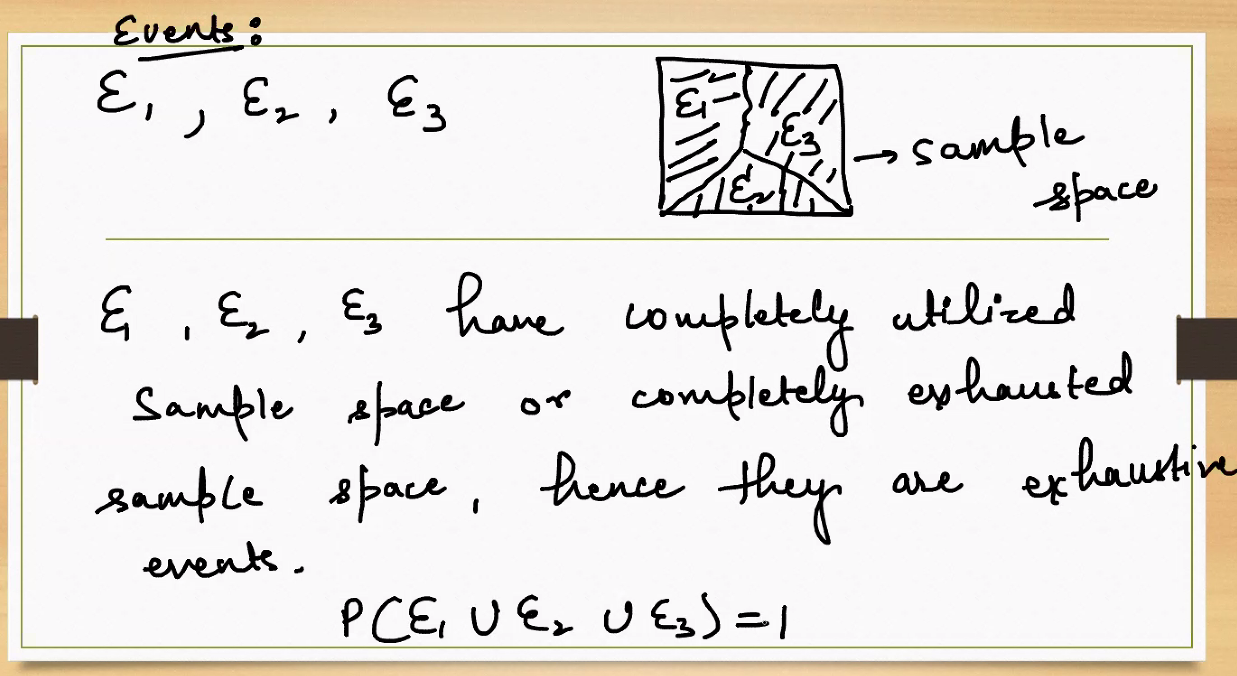 Events:
E₁ , E₂ , E₃
E₁
E₃
E₂
→ sample
space
E₁ , E₂ , E₃ have completely utilized
Sample space or completely exhausted
sample space, hence they are exhaustive
events.
P(E₁ ∪ E₂ ∪ E₃) = 1